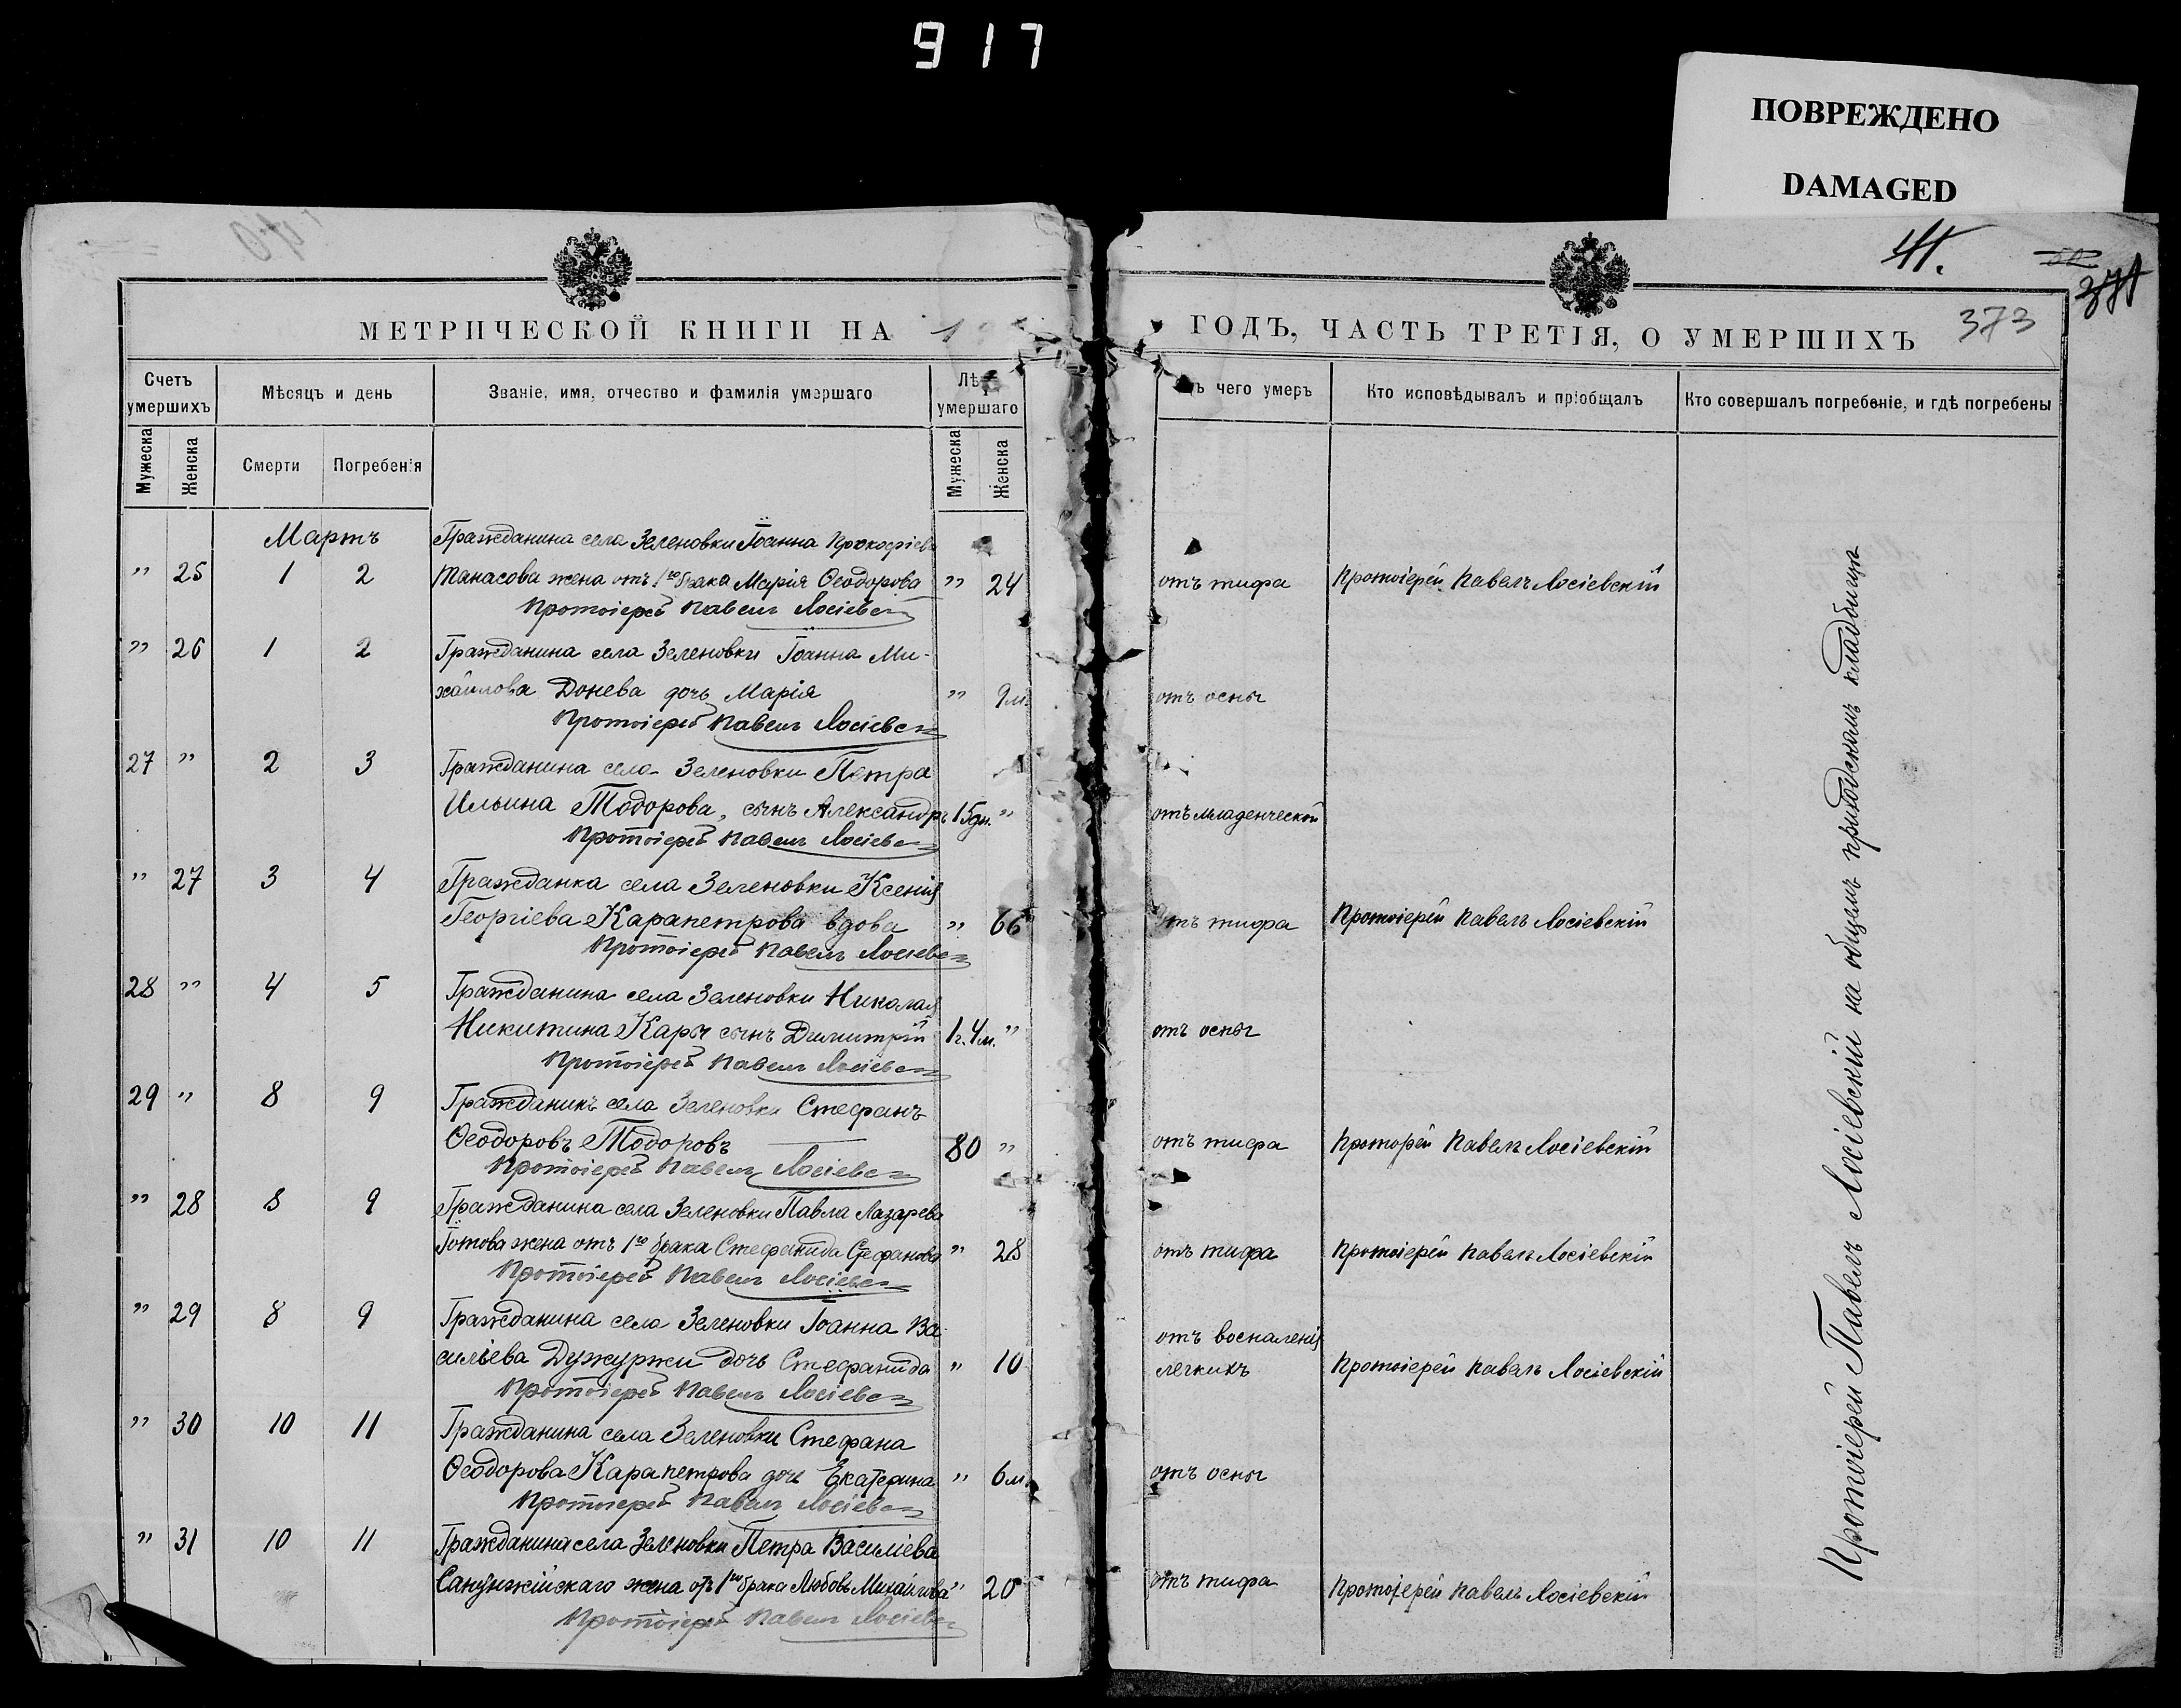 917
ПОВРЕЖДЕНО
DAMAGED
41.
371
373
МЕТРИЧЕСКОЙ КНИГИ НА 1
ГОДЪ, ЧАСТЬ ТРЕТІЯ, О УМЕРШИХЪ
Счетъ умершихъ
Мѣсяцъ и день
Званіе, имя, отчество и фамилія умершаго
Лѣ умершаго
ъ чего умеръ
Кто исповѣдывалъ и пріобщалъ
Кто совершалъ погребеніе, и гдѣ погребены
Мужеска Женска Смерти Погребенія Мужеска Женска
Мартъ Гражданина села Зеленовки Іоанна Прокофіева
" 25 1 2 Танасова жена отъ 1го брака Марія Ѳеодорова " 24 отъ тифа Протоіерей Павелъ Лосіевскій
Протоіерей Павелъ Лосіевс
" 26 1 2 Гражданина села Зеленовки Іоанна Ми-
хайлова Донева дочь Марія " 9м. отъ оспы
Протоіерей Павелъ Лосіевс
27 " 2 3 Гражданина села Зеленовки Петра
Ильина Тодорова, сынъ Александръ 15дн. " отъ младенческой
Протоіерей Павелъ Лосіевс
" 27 3 4 Гражданка села Зеленовки Ксенія
Георгіева Карапетрова вдова " 66 отъ тифа Протоіерей Павелъ Лосіевскій
Протоіерей Павелъ Лосіевс
28 " 4 5 Гражданина села Зеленовки Николая
Никитина Кары сынъ Димитрій 1г.4м. " отъ оспы
Протоіерей Павелъ Лосіевс
29 " 8 9 Гражданинъ села Зеленовки Стефанъ
Ѳеодоровъ Тодоровъ 80 " отъ тифа Протоіерей Павелъ Лосіевскій
Протоіерей Павелъ Лосіевс
" 28 8 9 Гражданина села Зеленовки Павла Лазарева
Готова жена отъ 1го брака Стефанида Стефанова " 28 отъ тифа Протоіерей Павелъ Лосіевскій
Протоіерей Павелъ Лосіевс
" 29 8 9 Гражданина села Зеленовки Іоанна Ва-
сильева Дужуржи дочь Стефанида " 10 отъ воспаленія легкихъ Протоіерей Павелъ Лосіевскій
Протоіерей Павелъ Лосіевс
" 30 10 11 Гражданина села Зеленовки Стефана
Ѳеодорова Карапетрова дочь Екатерина " 6м. отъ оспы
Протоіерей Павелъ Лосіевс
" 31 10 11 Гражданина села Зеленовки Петра Василіева
жена отъ 1го брака Любовь Михайлова " 20 отъ тифа Протоіерей Павелъ Лосіевскій
Протоіерей Павелъ Лосіевс
Протоіерей Павелъ Лосіевскій на общемъ приходскомъ кладбищѣ